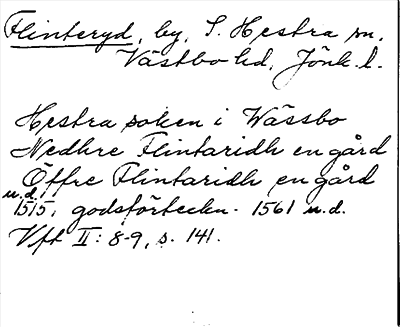 Flinteryd, by, S. Hestra sn,
Västbo hd, Jönk. l.
Hestra soken i Wässbo
Nedhre Flintaridh en gård
Öffre Flintaridh en gård
u.d.
1515, godsförteckn. 1561 u.d.
Vft II: 8-9, s. 141.